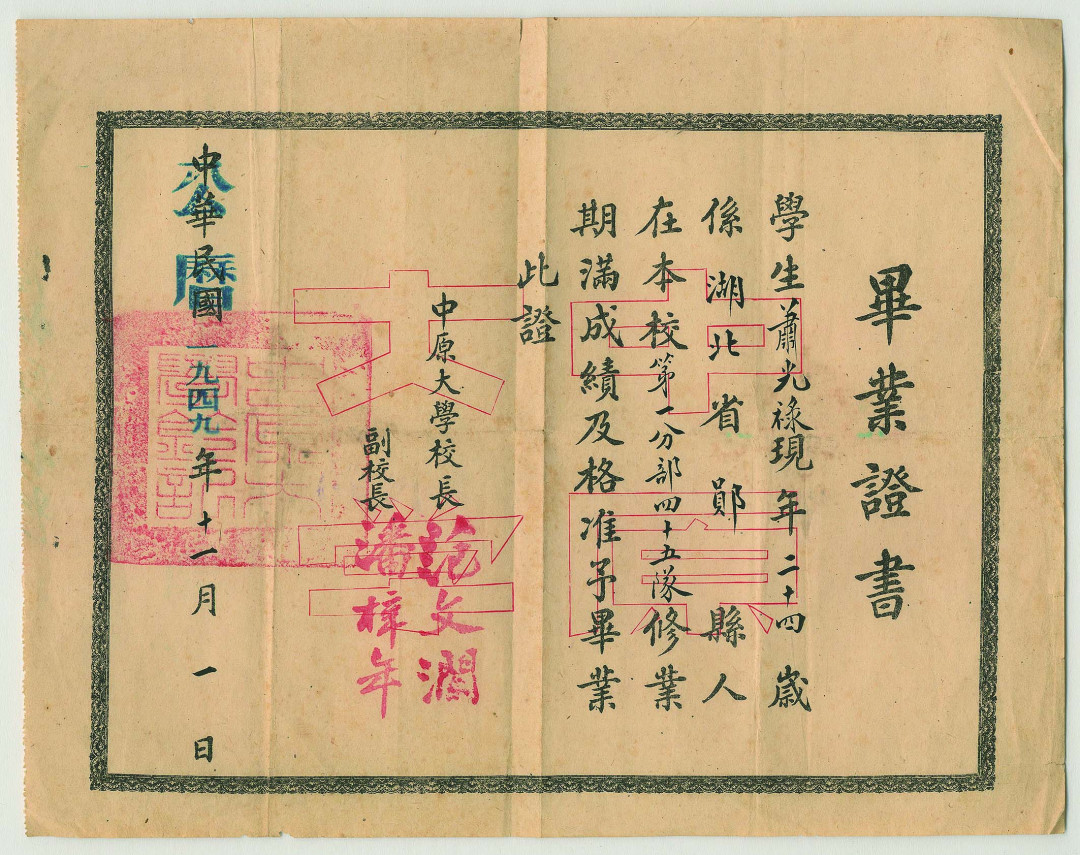 畢業證書
學生蕭光祿現年二十四歲
係湖北省鄖縣人
在本校第一分部四十五隊修業
期滿成績及格准予畢業
此證
中原大學校長 范文瀾
副校長 潘梓年
中華民國一九四九年十一月一日
公曆